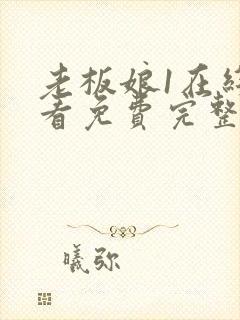 老板娘1在线
看免费完整
曦弥